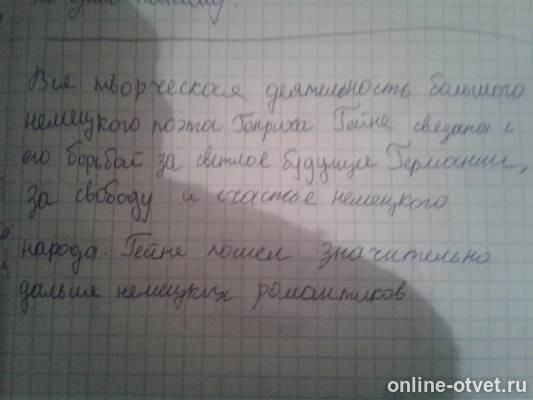 Вся творческая деятельность большого
немецкого поэта Генриха Гейне связана с
его борьбой за светлое будущее Германии,
за свободу и счастье немецкого
народа. Гейне пошел значительно
дальше немецких романтиков.
online-otvet.ru